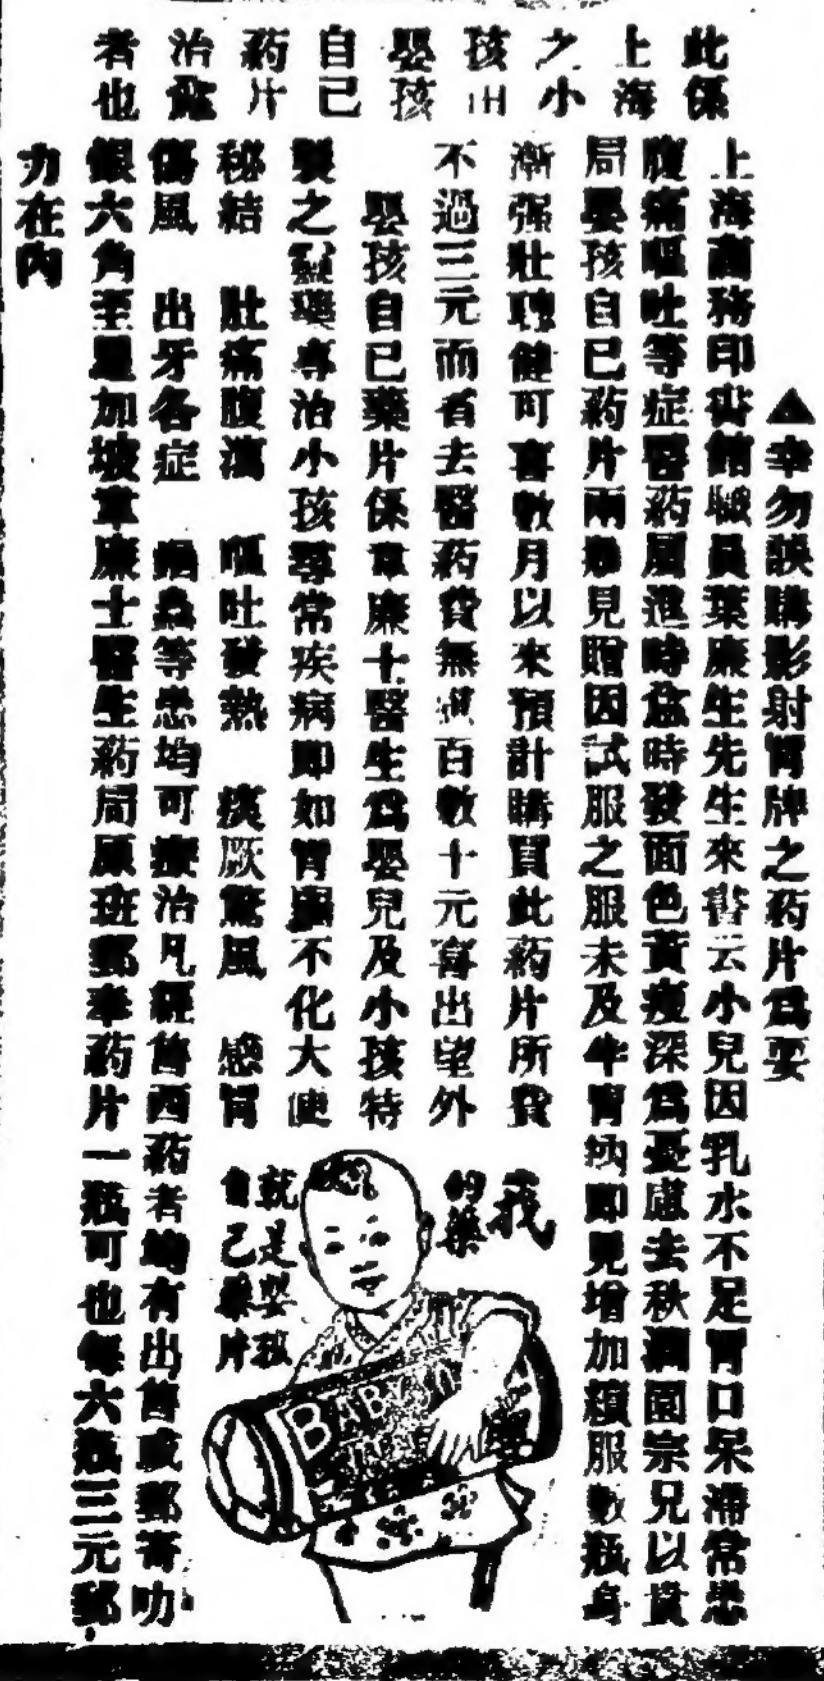 此係
上海
之小
孩由
嬰孩
自己
药片
治愈
者也
▲幸勿誤購影射冑牌之药片為要
上海商務印書館職員葉廉生先生來書云小兒因乳水不足胃口呆滯常患
腹痛嘔吐等症醫药屢進時愈時發面色黃瘦深為憂慮去秋蘭園宗兄以貴
局嬰孩自已药片兩瓶見贈因試服之服未及半胃病即見增加續服數瓶身
漸强壯聰健可喜數月以來預計購買此药片所費
不過三元而省去醫药費無慮百數十元喜出望外
嬰孩自已藥片係韋廉士醫生為嬰兒及小孩特
製之靈藥專治小孩尋常疾病即如胃滯不化大便
秘結 肚痛腹瀉 嘔吐發熱 痰厥驚風 感冒
傷風 出牙各症 蛔蟲等患均可療治凡經售西药者均有出售或郵寄叻
銀六角至星加坡韋廉士醫生药局原班郵奉药片一瓶可也每六瓶三元郵
力在內
我
的藥
就是嬰孩
自己藥片
BABY'S OWN
TABLETS